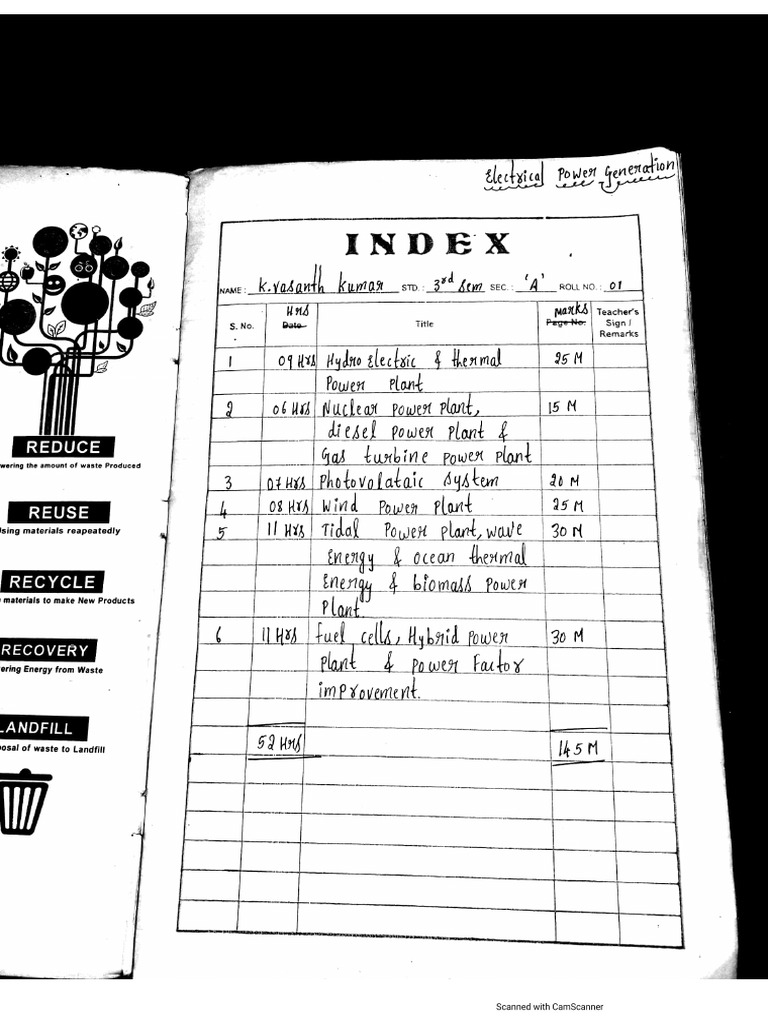 Electrical Power Generation
INDEX
NAME: K.Vasanth Kumar STD.: 3rd Sem SEC.: 'A' ROLL NO.: 01
Hrs marks
S. No. Date Title Page No. Teacher's Sign / Remarks
1 09 Hrs Hydro Electric & thermal 25 M
Power Plant
2 06 Hrs Nuclear Power Plant, 15 M
diesel Power Plant &
Gas turbine power plant
3 07 Hrs Photovolataic System 20 M
4 08 Hrs Wind Power Plant 25 M
5 11 Hrs Tidal Power plant, wave 30 M
Energy & ocean thermal
Energy & biomass power
Plant.
6 11 Hrs fuel cells, Hybrid Power 30 M
Plant & Power Factor
improvement.
52 Hrs 145 M
REDUCE
wering the amount of waste Produced
REUSE
sing materials reapeatedly
RECYCLE
materials to make New Products
RECOVERY
ering Energy from Waste
LANDFILL
posal of waste to Landfill
Scanned with CamScanner